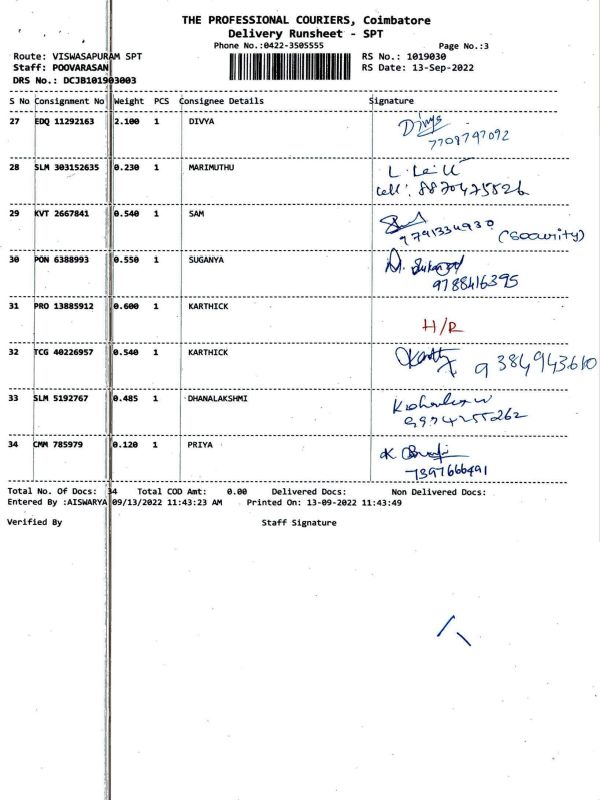 THE PROFESSIONAL COURIERS, Coimbatore
Delivery Runsheet - SPT
Phone No.:0422-3505555 Page No.:3
Route: VISWASAPURAM SPT RS No.: 1019030
Staff: POOVARASAN RS Date: 13-Sep-2022
DRS No.: DCJB101903003
S No Consignment No Weight PCS Consignee Details Signature
27 EDQ 11292163 2.100 1 DIVYA Divya
7708797092
28 SLM 303152635 0.230 1 MARIMUTHU
cell: 8870475826
29 KVT 2667841 0.540 1 SAM
9791334930 (Security)
30 PON 6388993 0.550 1 SUGANYA
9788416395
31 PRO 13885912 0.600 1 KARTHICK
H/R
32 TCG 40226957 0.540 1 KARTHICK 9384943610
33 SLM 5192767 0.485 1 DHANALAKSHMI
9974255262
34 CMM 785979 0.120 1 PRIYA
7397666491
Total No. Of Docs: 34 Total COD Amt: 0.00 Delivered Docs: Non Delivered Docs:
Entered By :AISWARYA 09/13/2022 11:43:23 AM Printed On: 13-09-2022 11:43:49
Verified By Staff Signature